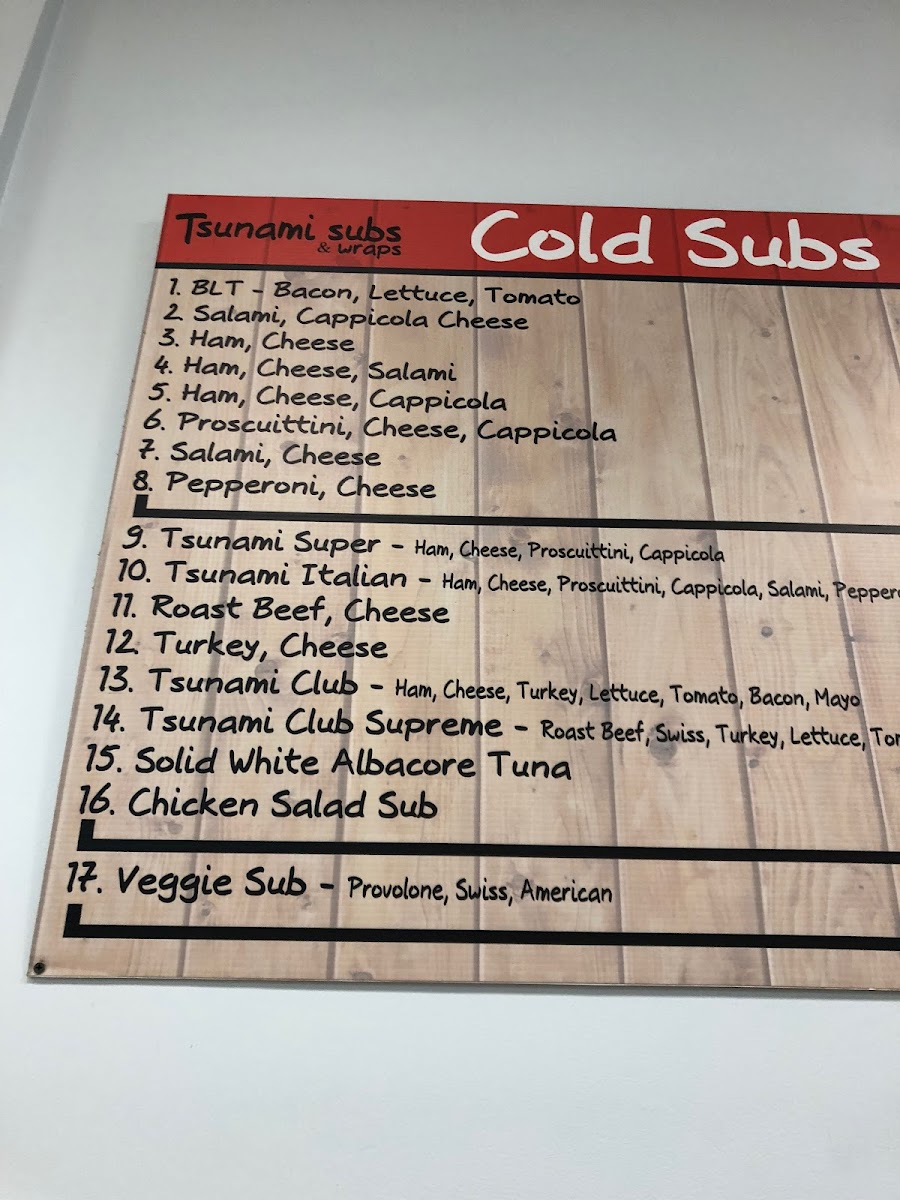 Tsunami subs
& wraps
Cold Subs
1. BLT - Bacon, Lettuce, Tomato
2. Salami, Cappicola Cheese
3. Ham, Cheese
4. Ham, Cheese, Salami
5. Ham, Cheese, Cappicola
6. Proscuittini, Cheese, Cappicola
7. Salami, Cheese
8. Pepperoni, Cheese
9. Tsunami Super - Ham, Cheese, Proscuittini, Cappicola
10. Tsunami Italian - Ham, Cheese, Proscuittini, Cappicola, Salami,
11. Roast Beef, Cheese
12. Turkey, Cheese
13. Tsunami Club - Ham, Cheese, Turkey, Lettuce, Tomato, Bacon, Mayo
14. Tsunami Club Supreme - Roast Beef, Swiss, Turkey, Lettuce,
15. Solid White Albacore Tuna
16. Chicken Salad Sub
17. Veggie Sub - Provolone, Swiss, American